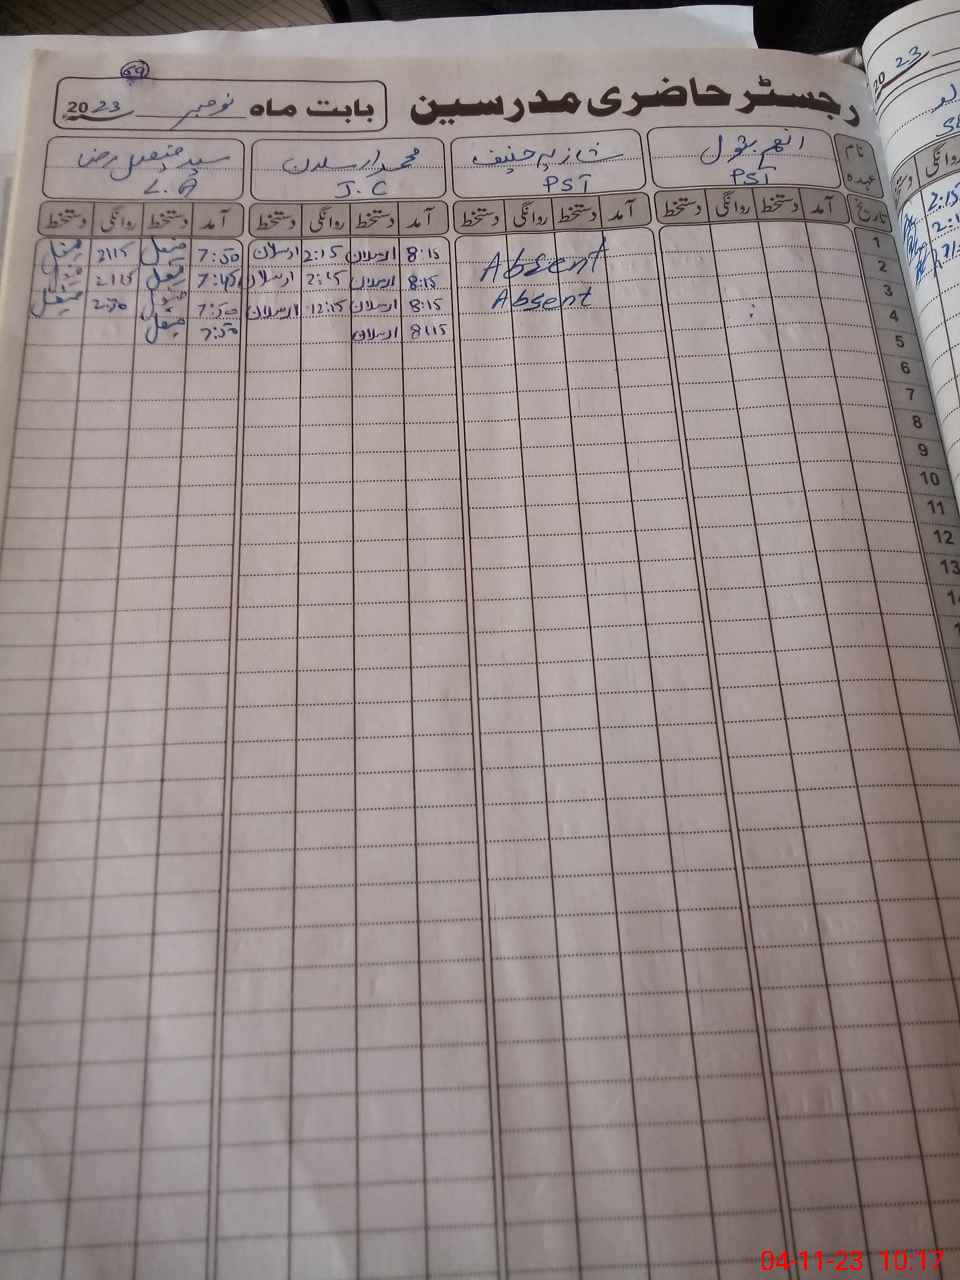 59
رجسٹر حاضری مدرسین
بابت ماہ نومبر 2023
نام عہدہ
انعم بتول
PST
شازیہ حنیف
PST
محمد ارسلان
J.C
سید
رضا
L.A
تاریخ آمد دستخط روانگی دستخط آمد دستخط روانگی دستخط آمد دستخط روانگی دستخط آمد دستخط روانگی دستخط
1 Absent 8:15 ارسلان 2:15 ارسلان 7:50 2:15
2 8:15 ارسلان 2:15 ارسلان 7:45 2:15
3 Absent 8:15 ارسلان 12:15 ارسلان 7:50 2:30
4 8:15 ارسلان 7:50
5
6
7
8
9
10
11
12
13
14
2023
روانگی
2:15
04-11-23 10:17